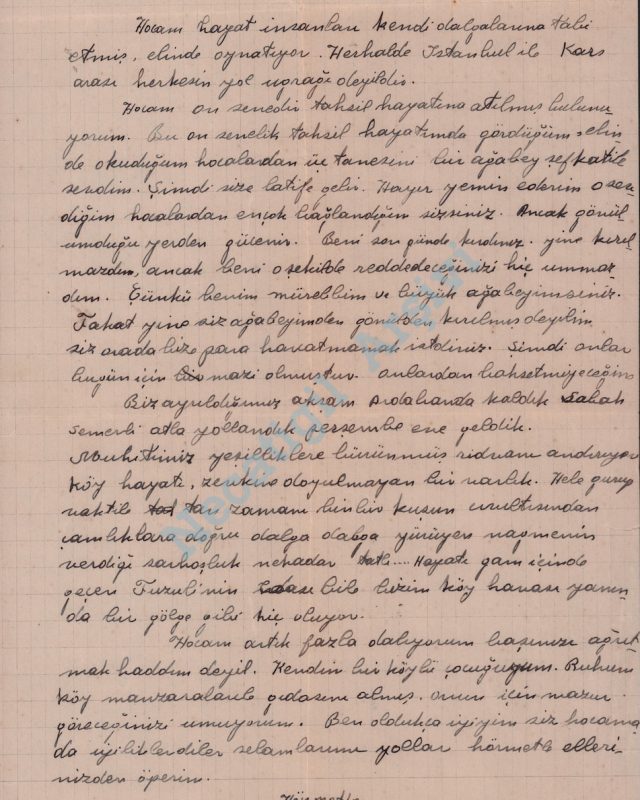 Hocam hayat insanları kendi dalgalarına tabii
etmiş, elinde oynatıyor. Herhalde İstanbul ile Kars
arası herkesin yol uğrağı deyildir.
Hocam on senedir tahsil hayatına atılmış bulunu-
yorum. Bu on senelik tahsil hayatımda gördüğüm elin-
de okuduğum hocalardan üç tanesini bir ağabey şefkatile
sevdim. Şimdi size latife gelir. Hayır yemin ederim o sev-
diğim hocalardan ençok bağlandığım sizsiniz. Ancak gönül
umduğu yerden gücenir. Beni son günde kırdınız. yine kırıl-
mazdım, ancak beni o şekilde reddedeceğinizi hiç ummaz-
dım. Çünkü benim mürebbim ve büyük ağabeyimsiniz.
Fakat yine siz ağabeyimden gönülden kırılmış deyilim
siz orada bize para harcatmamak istdiniz. Şimdi onlar
bugün için bir mazi olmuştur. onlardan bahsetmiyeceğim
Biz ayrıldığımız akşam Ardahanda kaldık Sabah
semerli atla yollandık perşembe eve geldik.
Muhitimiz yeşilliklere bürünmüş rıdvanı andırıyor
köy hayatı, zevkine doyulmayan bir varlık. Hele gurup
vaktile tan zamanı binbir kuşun cıvıltısından
çamlıklara doğru dalga dalga yürüyen nağmenin
verdiği sarhoşluk nekadar tatlı.... Hayatı gam içinde
geçen Fuzuli'nin bile bizim köy havası yanın-
da bir gölge gibi hiç oluyor.
Hocam artık fazla dalıyorum başınızı ağrıt-
mak haddim deyil. Kendim bir köylü çocuğuyum. Ruhum
köy manzaralarile gıdasını almış. onun için mazur
göreceğinizi umuyorum. Ben oldukça iyiyim siz hocama
da iyilikler diler selamlarımı yollar hörmetle elleri-
nizden öperim.
Necatigil Arşivi